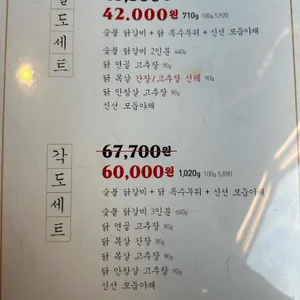 42.000원 710g 100g 5,920
숯불 닭갈비 + 닭 특수부위 + 신선 모듬야채
숯불 닭갈비 2인분 440g
닭 연골 고추장 90g
닭 목살 간장/고추장 선택 90g
닭 안창살 고추장 90g
신선 모듬야채
각도세트
67,700원
60,000원 1,020g 100g 5,890
숯불 닭갈비 + 닭 특수부위 + 신선 모듬야채
숯불 닭갈비 3인분 660g
닭 연골 고추장 90g
닭 목살 간장 90g
닭 목살 고추장 90g
닭 안창살 고추장 90g
신선 모듬야채